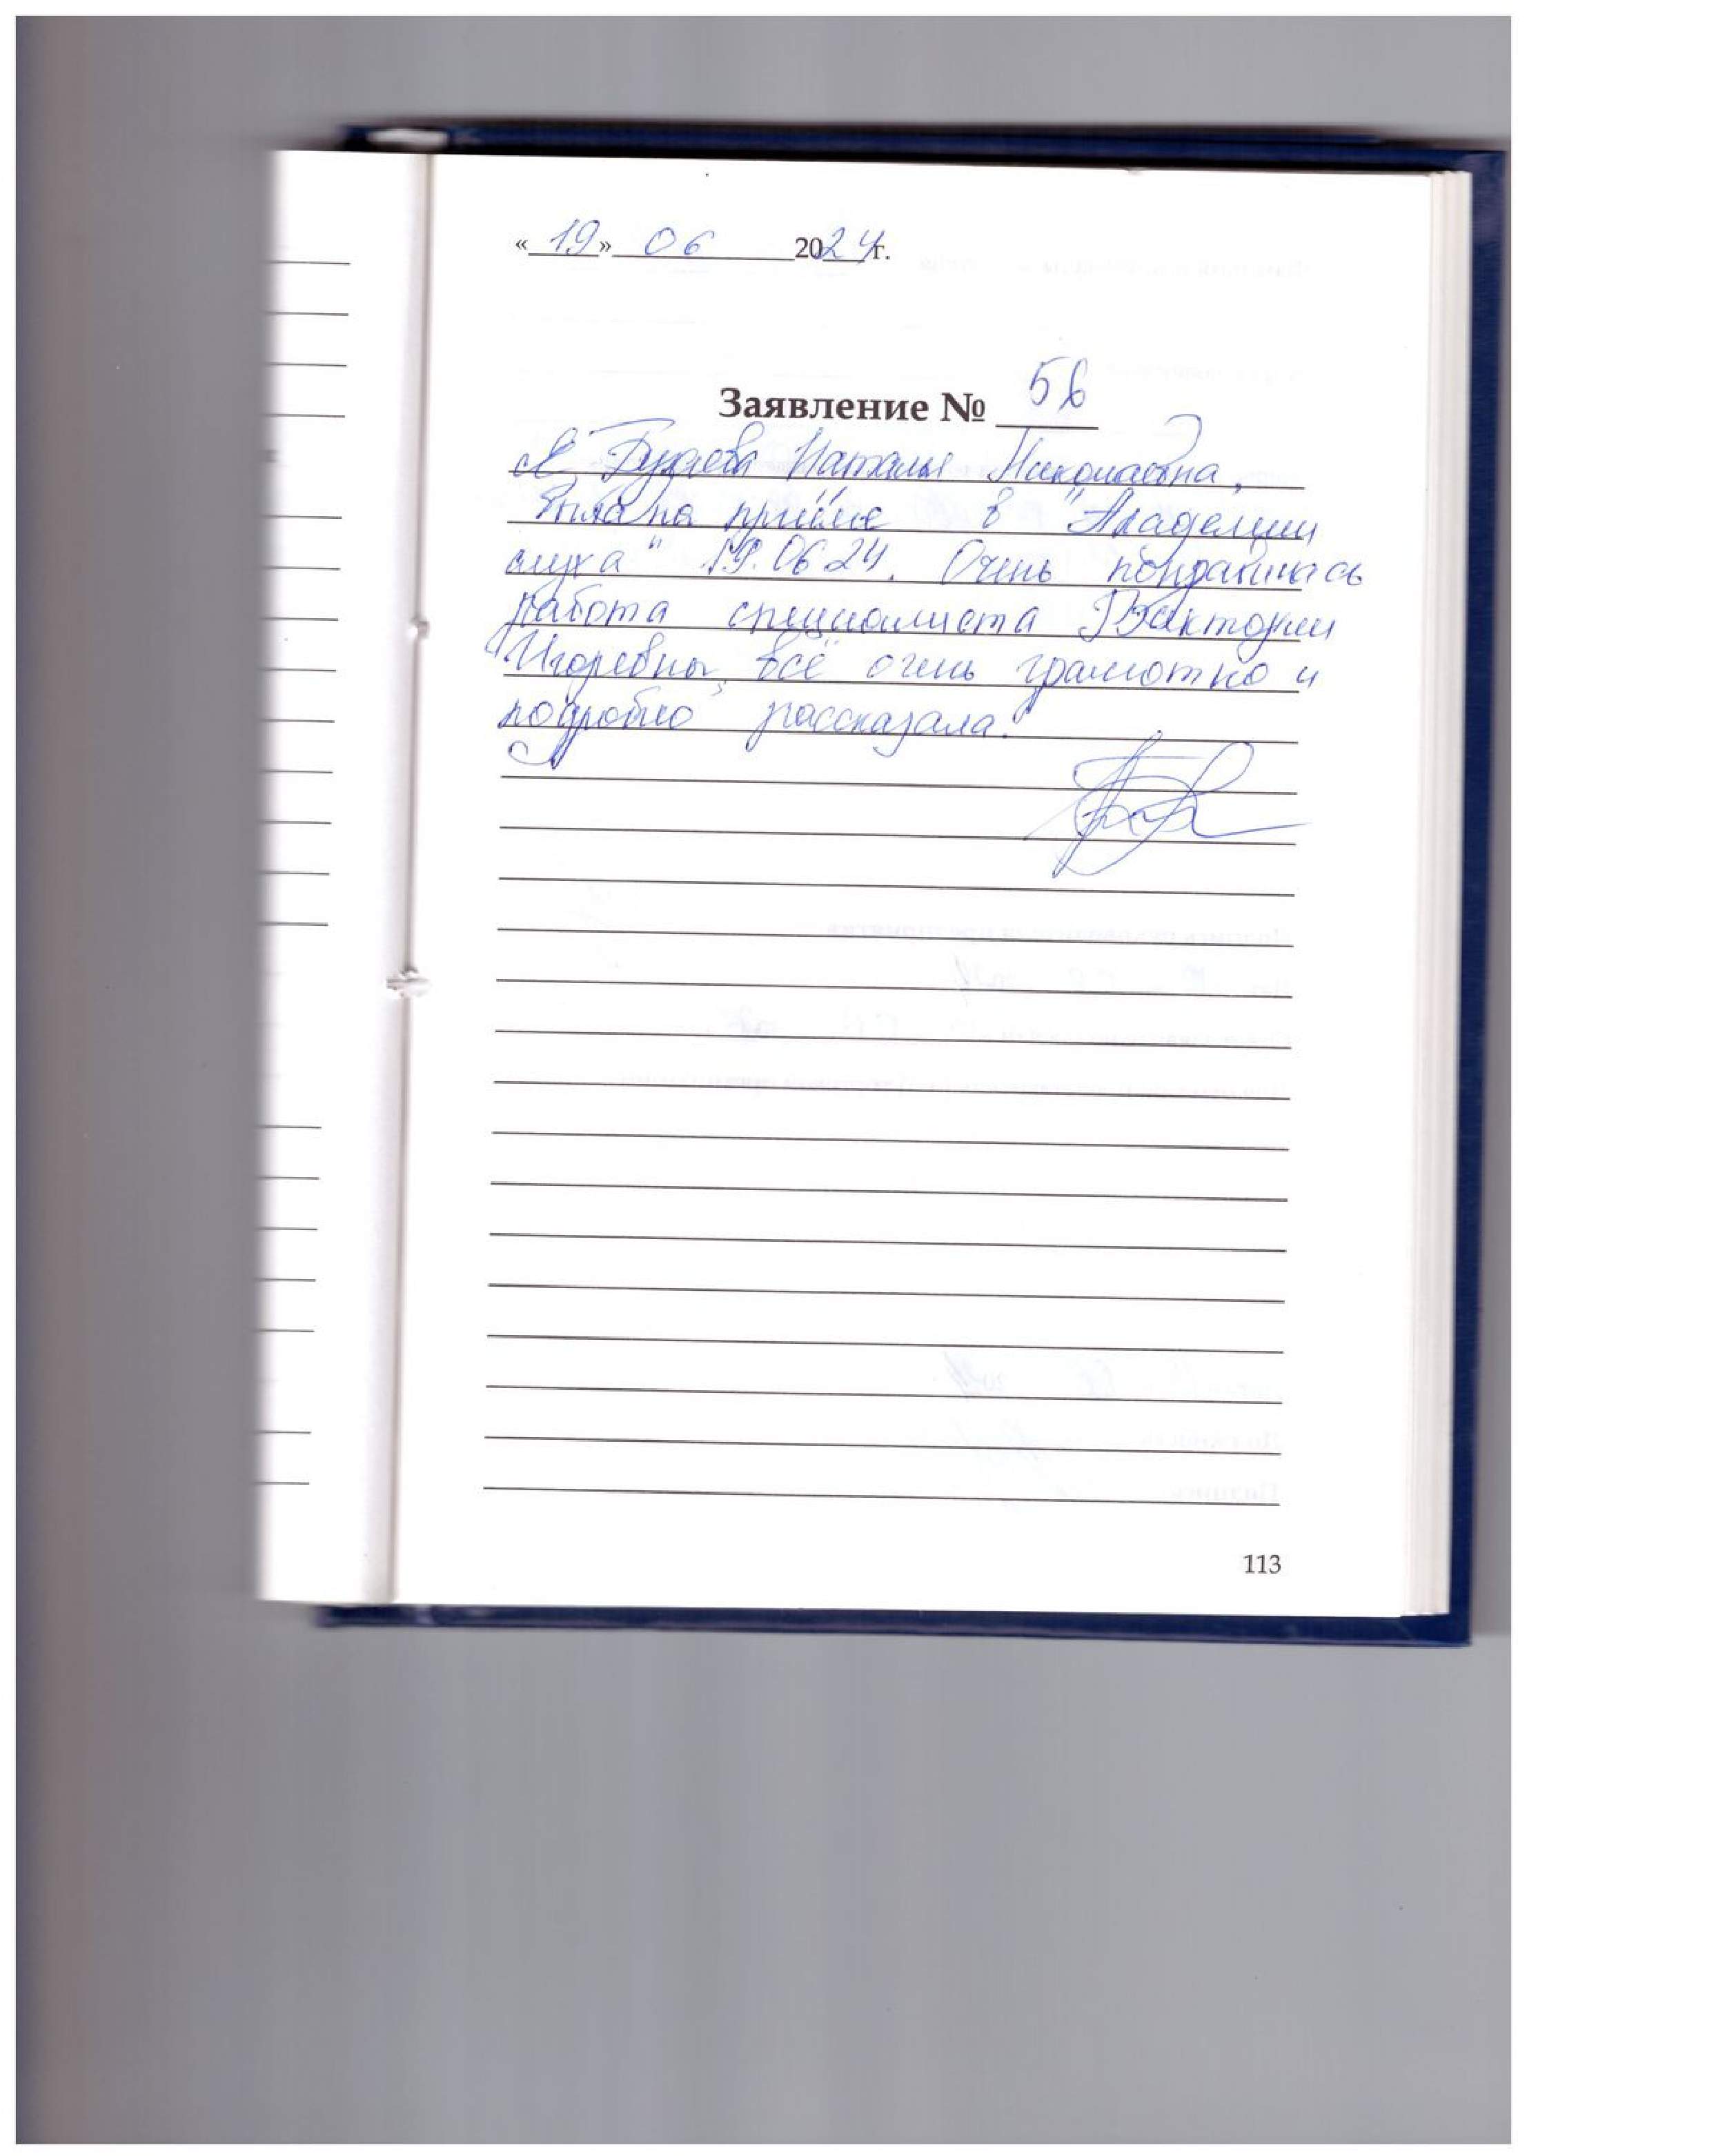 «19» 06 2024г.
Заявление № 56
Я Наталья Николаевна,
была на приёме в "Академии
слуха" 19.06.24. Очень понравилась
работа специалиста Виктории
Игоревны, всё очень грамотно и
подробно рассказала.
113